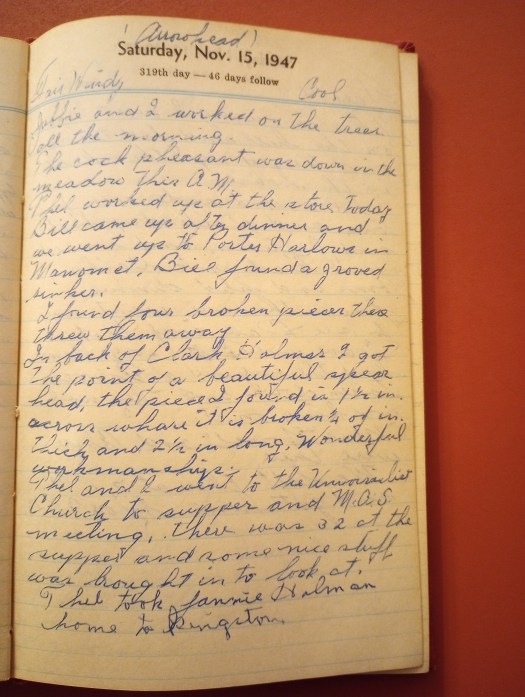 (Arrowhead)
Saturday, Nov. 15, 1947
319th day — 46 days follow
Fair Windy Cool
and I worked on the trees
all the morning.
The cock pheasant was down in the
meadow this A.M.
Thel worked up at the store today
Bill came up after dinner and
we went up to Porter Harlows in
Manomet, Bill found a groved
sinker.
I found four broken pieces there
threw them away
In back of Clark Holmes I got
the point of a beautiful spear
head, the piece I found is 1½ in.
across whare it is broken ¼ of in.
thick and 2½ in long. Wonderful
workmanship.
Thel and I went to the
Church to supper and M.A.S.
meeting, there was 32 at the
supper and some nice stuff
was brought in to look at.
Thel took Fannie Holman
home to Kingston.